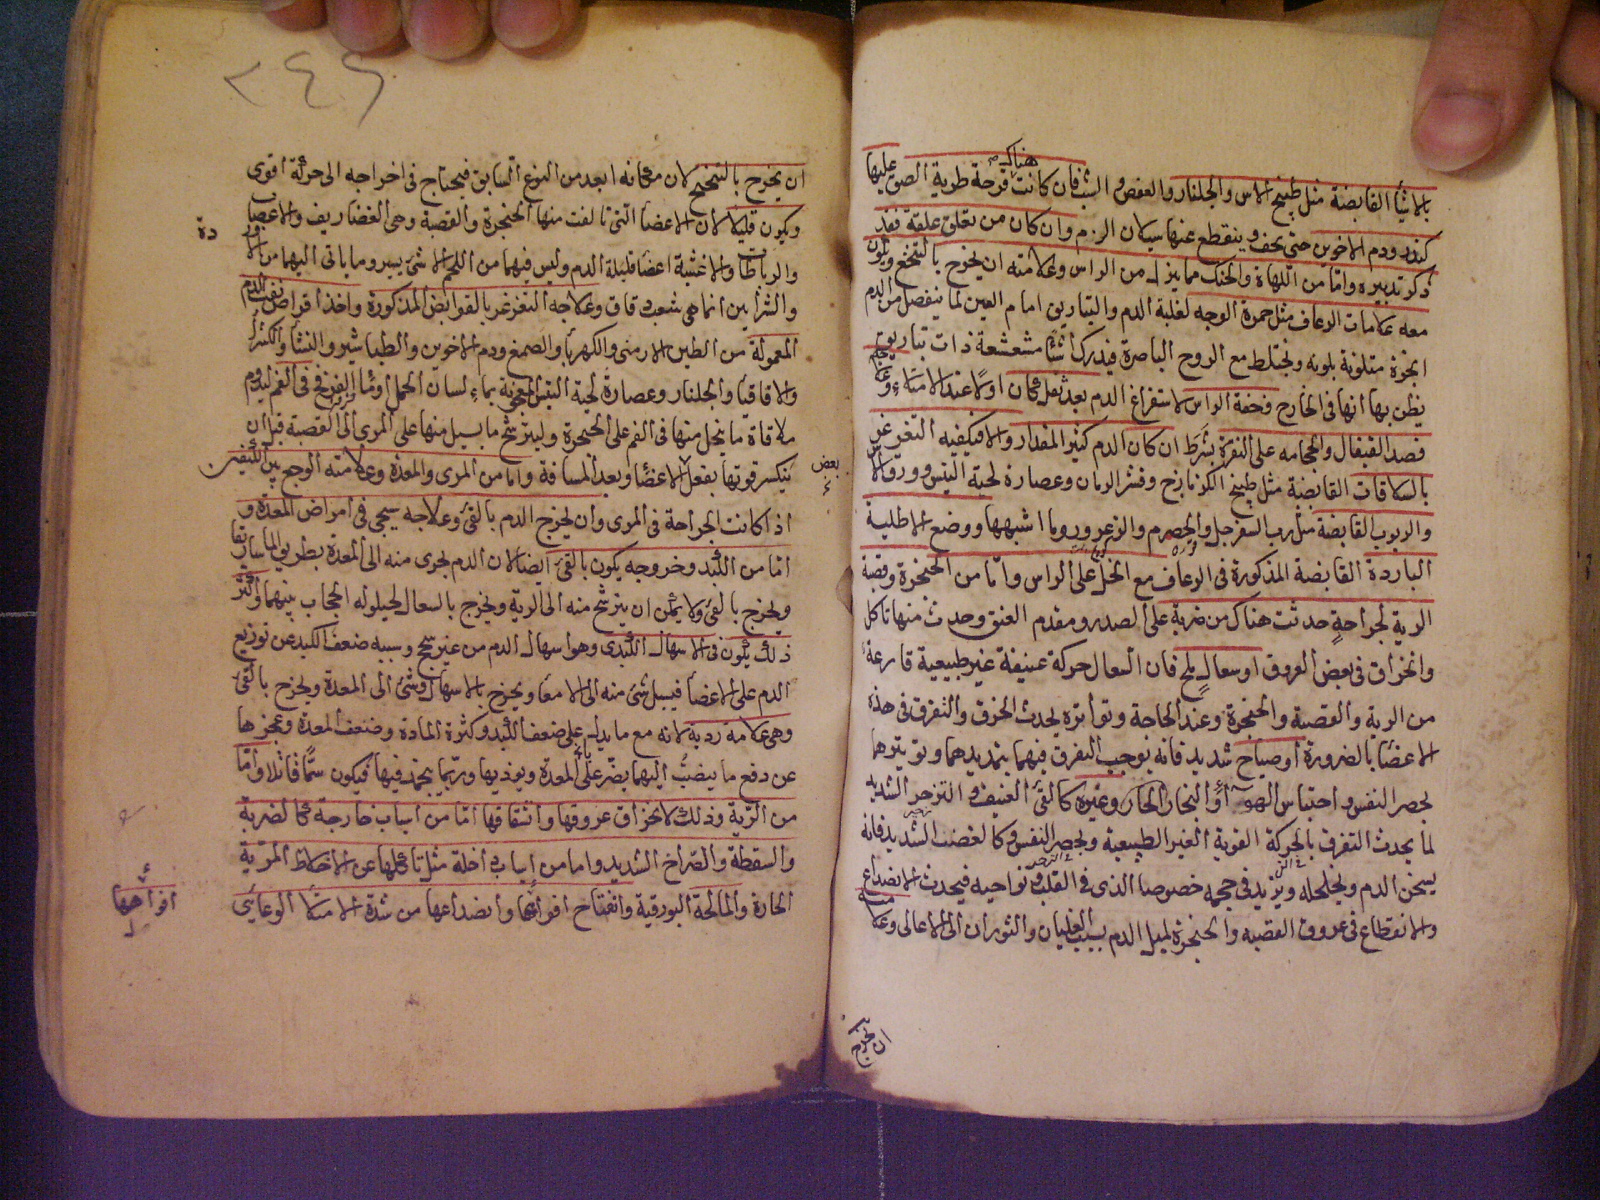 بالاشيا القابضة مثل طبيخ الاس والجلنار والعفص و الشب فان كانت هناك قرحة طرية الصق عليها
كندر ودم الاخوين حتى يجف وينقطع عنها سيلان الدم وان كان من تعلق علقة فقد
ذكر تدبيره واما من اللهاة والحنك مما ينزل من الراس وعلامته ان يخرج بالتنخع ويكون
معه علامات الرعاف مثل حمرة الوجه لغلبة الدم والتباريق امام العين لما ينفصل من الدم
ابخرة متلونة بلونه ويختلط مع الروح الباصرة فيدرك اشيا مشعشعة ذات تباريق
يظن بها انها في الخارج وخفة الراس لاستفراغ الدم بعد ثقل كان اولا عند الامتلاء وعلاجه
فصد القيفال والحجامه على النقرة بشرط ان كان الدم كثير المقدار والا فيكفيه التغرغر
بالسلاقات القابضة مثل طبيخ الكزمازج وقشر الرمان وعصارة لحية التيس وورق الاس
والربوب القابضة مثل رب السفرجل والحصرم والزعرور وما اشبهها ووضع الاطلية
الباردة القابضة المذكورة في الرعاف مع الخل على الراس واما من الحنجرة وقصبة
الرية لجراحة حدثت هناك من ضربة على الصدر ومقدم العنق وحدث منها تاكل
وانخراق في بعض العروق او سعال ملح فان السعال حركة عنيفة غير طبيعية قارعة
من الرية والقصبة والحنجرة وعند الحاجة وتواتره يحدث الخرق والتفرق في هذه
الاعضا بالضرورة او صياح شديد فانه يوجب التفرق فيهما بتمديدهما وتوتيرهما
بحصر النفس واحتباس الهوا او البخار الحار وغيره كالقئ العنيف و التزحر الشديد
لما يحدث التفرق بالحركة القوية الغير الطبيعية وبحصر النفس وكالغضب الشديد فانه
يسخن الدم ويخلخله ويزيد في حجمه خصوصا الذي في القلب ونواحيه فيحدث الانصداع
والانقطاع في عروق القصبه والحنجرة لميل الدم بسبب الغليان والثوران الى الاعالى وعلامته
ان يخرج
٢٤٦
ان يخرج بالتنحنح لان مكانه ابعد من النوع السابق فيحتاج في اخراجه الى حركة اقوى
ويكون قليلا لان الاعضا التي تالفت منها الحنجرة والقصبة وهى الغضاريف والاعصاب
والرباطات والاغشية اعضا قليلة الدم وليس فيهما من اللحم الا شئ يسير وما ياتى اليهما من الاوردة
والشرايين انما هى شعب دقاق وعلاجه التغرغر بالقوابض المذكورة واخذ اقراص نفث الدم
المعمولة من الطين الارمنى والكهربا والصمغ ودم الاخوين والطباشير والنشا والكثيرا
والاقاقيا والجلنار وعصارة لحية التيس المعجونة بماء لسان الحمل او ماء الفرفخ في الفم ليدوم
ملاقاة ما ينحل منها في الفم على الحنجرة وليترشح ما يسيل منها على المرى الى القصبة قبل ان
ينكسر قوتها بفعل الاعضا وبعد المسافة واما من المرى والمعدة وعلامته الوجع بين الكتفين
بعض
اذا كانت الجراحة في المرى وان يخرج الدم بالقئ وعلاجه سيجى في امراض المعدة و
اما من الكبد وخروجه يكون بالقئ ايضا لان الدم يجرى منه الى المعدة بطريق الماساريقا
ويخرج بالقئ ولا يمكن ان يترشح منه الى الرية ويخرج بالسعال لحيلوله الحجاب بينهما واكثر
ذلك يكون في الاسهال الكبدى وهو اسهال الدم من غير سحج وسببه ضعف الكبد عن توزيع
الدم على الاعضا فيسيل شئ منه الى الامعا ويخرج بالاسهال وشئ الى المعدة ويخرج بالقئ
وهى علامة ردية لانه مع ما يدل على ضعف الكبد وكثرة المادة وضعف المعدة وعجزها
عن دفع ما ينصب اليهما يضر على المعدة ويوذيها وربما يجمد فيها فيكون سما قاتلا واما
من الرية وذلك لانخراق عروقها وانشقاقها اما من اسباب خارجة كالضربة
والسقطة والصراخ الشديد واما من اسباب داخلة مثل تاكلها عن الاخلاط المرية
الحارة والمالحة البورقية وانفتاح افواهها وانصداعها من شدة الامتلا الوعائى
افواهها